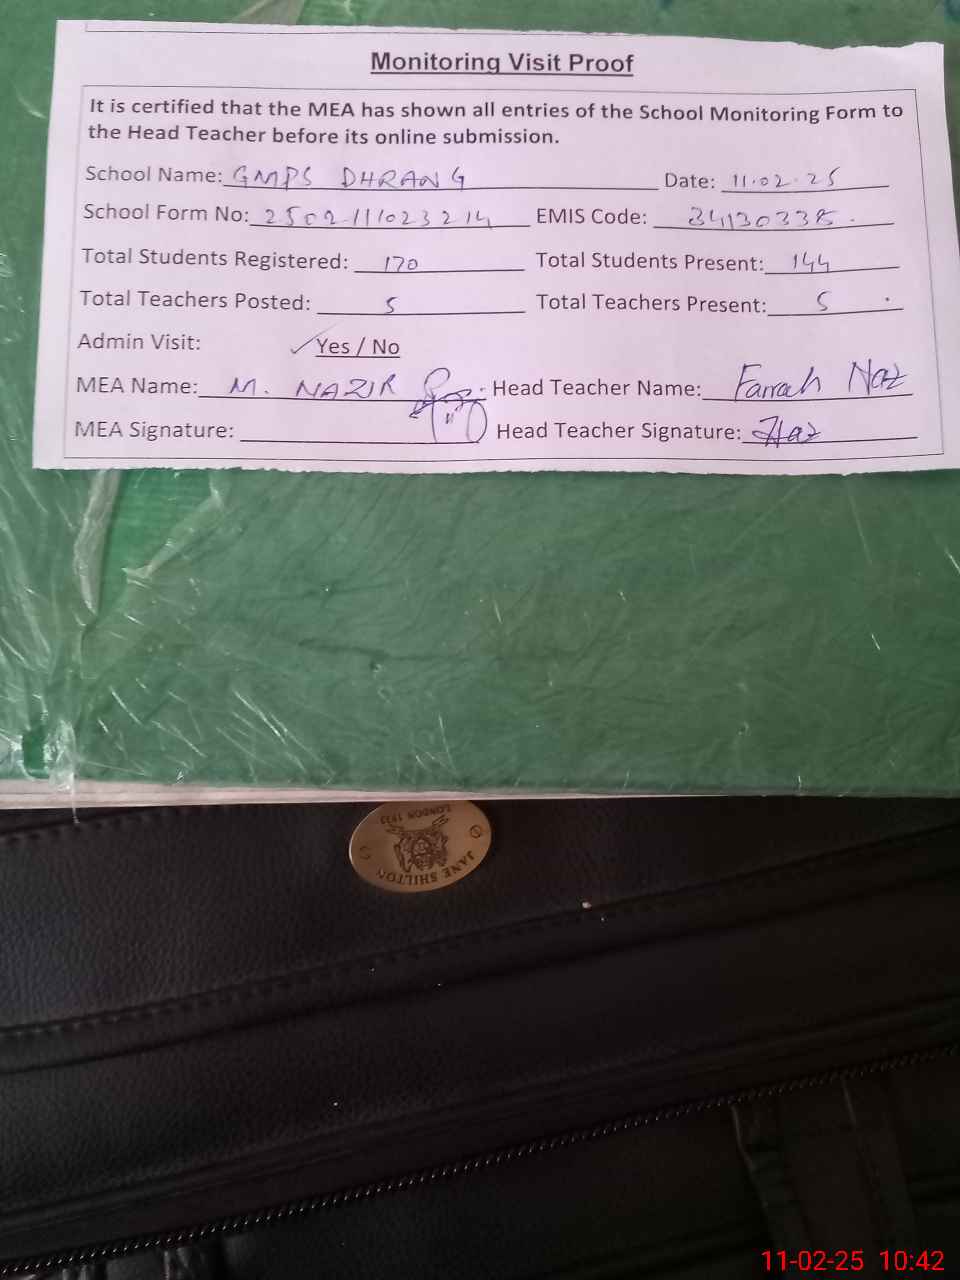 Monitoring Visit Proof
It is certified that the MEA has shown all entries of the School Monitoring Form to
the Head Teacher before its online submission.
School Name: GMPS DHRANG Date: 11.02.25
School Form No: 2502111023214 EMIS Code: 341303385
Total Students Registered: 170 Total Students Present: 144
Total Teachers Posted: 5 Total Teachers Present: 5
Admin Visit: ✓ Yes / No
MEA Name: M. NAZIR Head Teacher Name: Farrah Naz
MEA Signature: Head Teacher Signature: Naz
JANE SHILTON
LONDON 1933
11-02-25 10:42